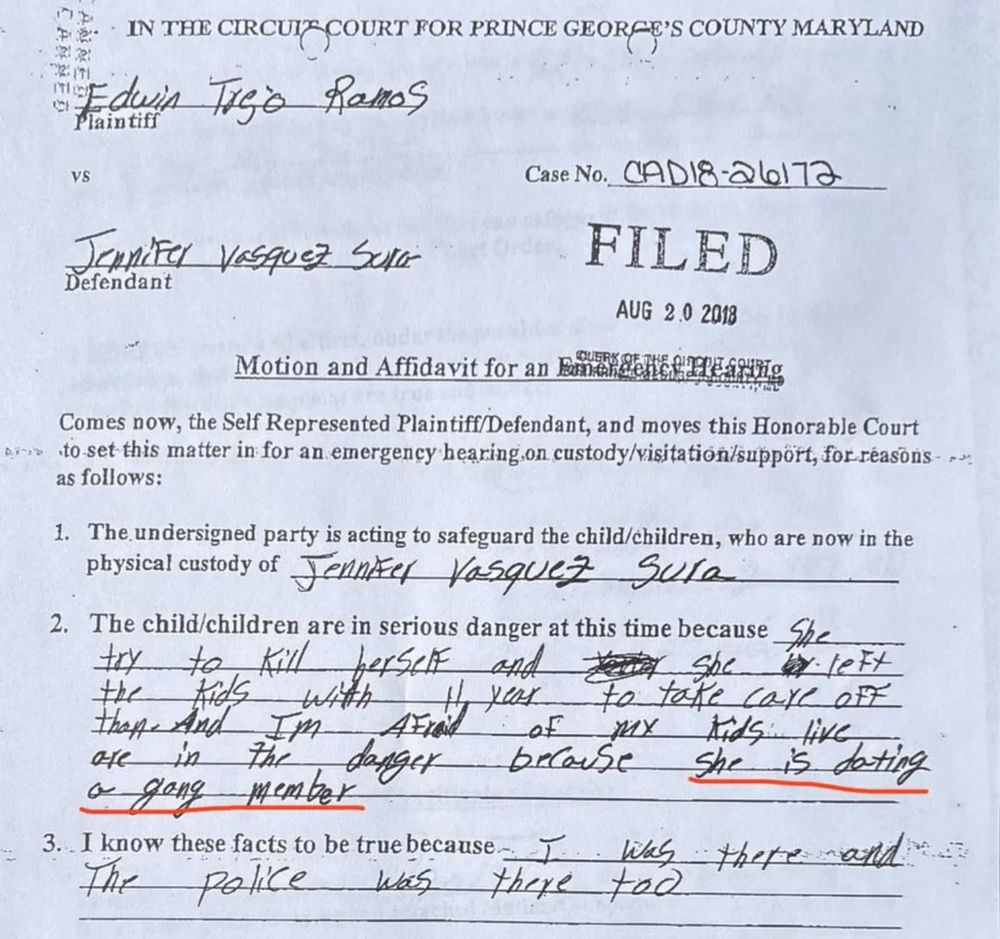 IN THE CIRCUIT COURT FOR PRINCE GEORGE'S COUNTY MARYLAND
Edwin Trejo Ramos
Plaintiff
vs
Case No. CAD18-26172
Jennifer Vasquez Sura
Defendant
FILED
AUG 20 2018
CLERK OF THE CIRCUIT COURT
Motion and Affidavit for an Emergency Hearing
Comes now, the Self Represented Plaintiff/Defendant, and moves this Honorable Court
to set this matter in for an emergency hearing on custody/visitation/support, for reasons
as follows:
1. The undersigned party is acting to safeguard the child/children, who are now in the
physical custody of Jennifer Vasquez Sura
2. The child/children are in serious danger at this time because She
try to kill herself and she left
the kids with 11 year to take care off
than. And Im Afraid of my kids live
are in the danger because she is dating
a gang member
3. I know these facts to be true because I was there and
The police was there too